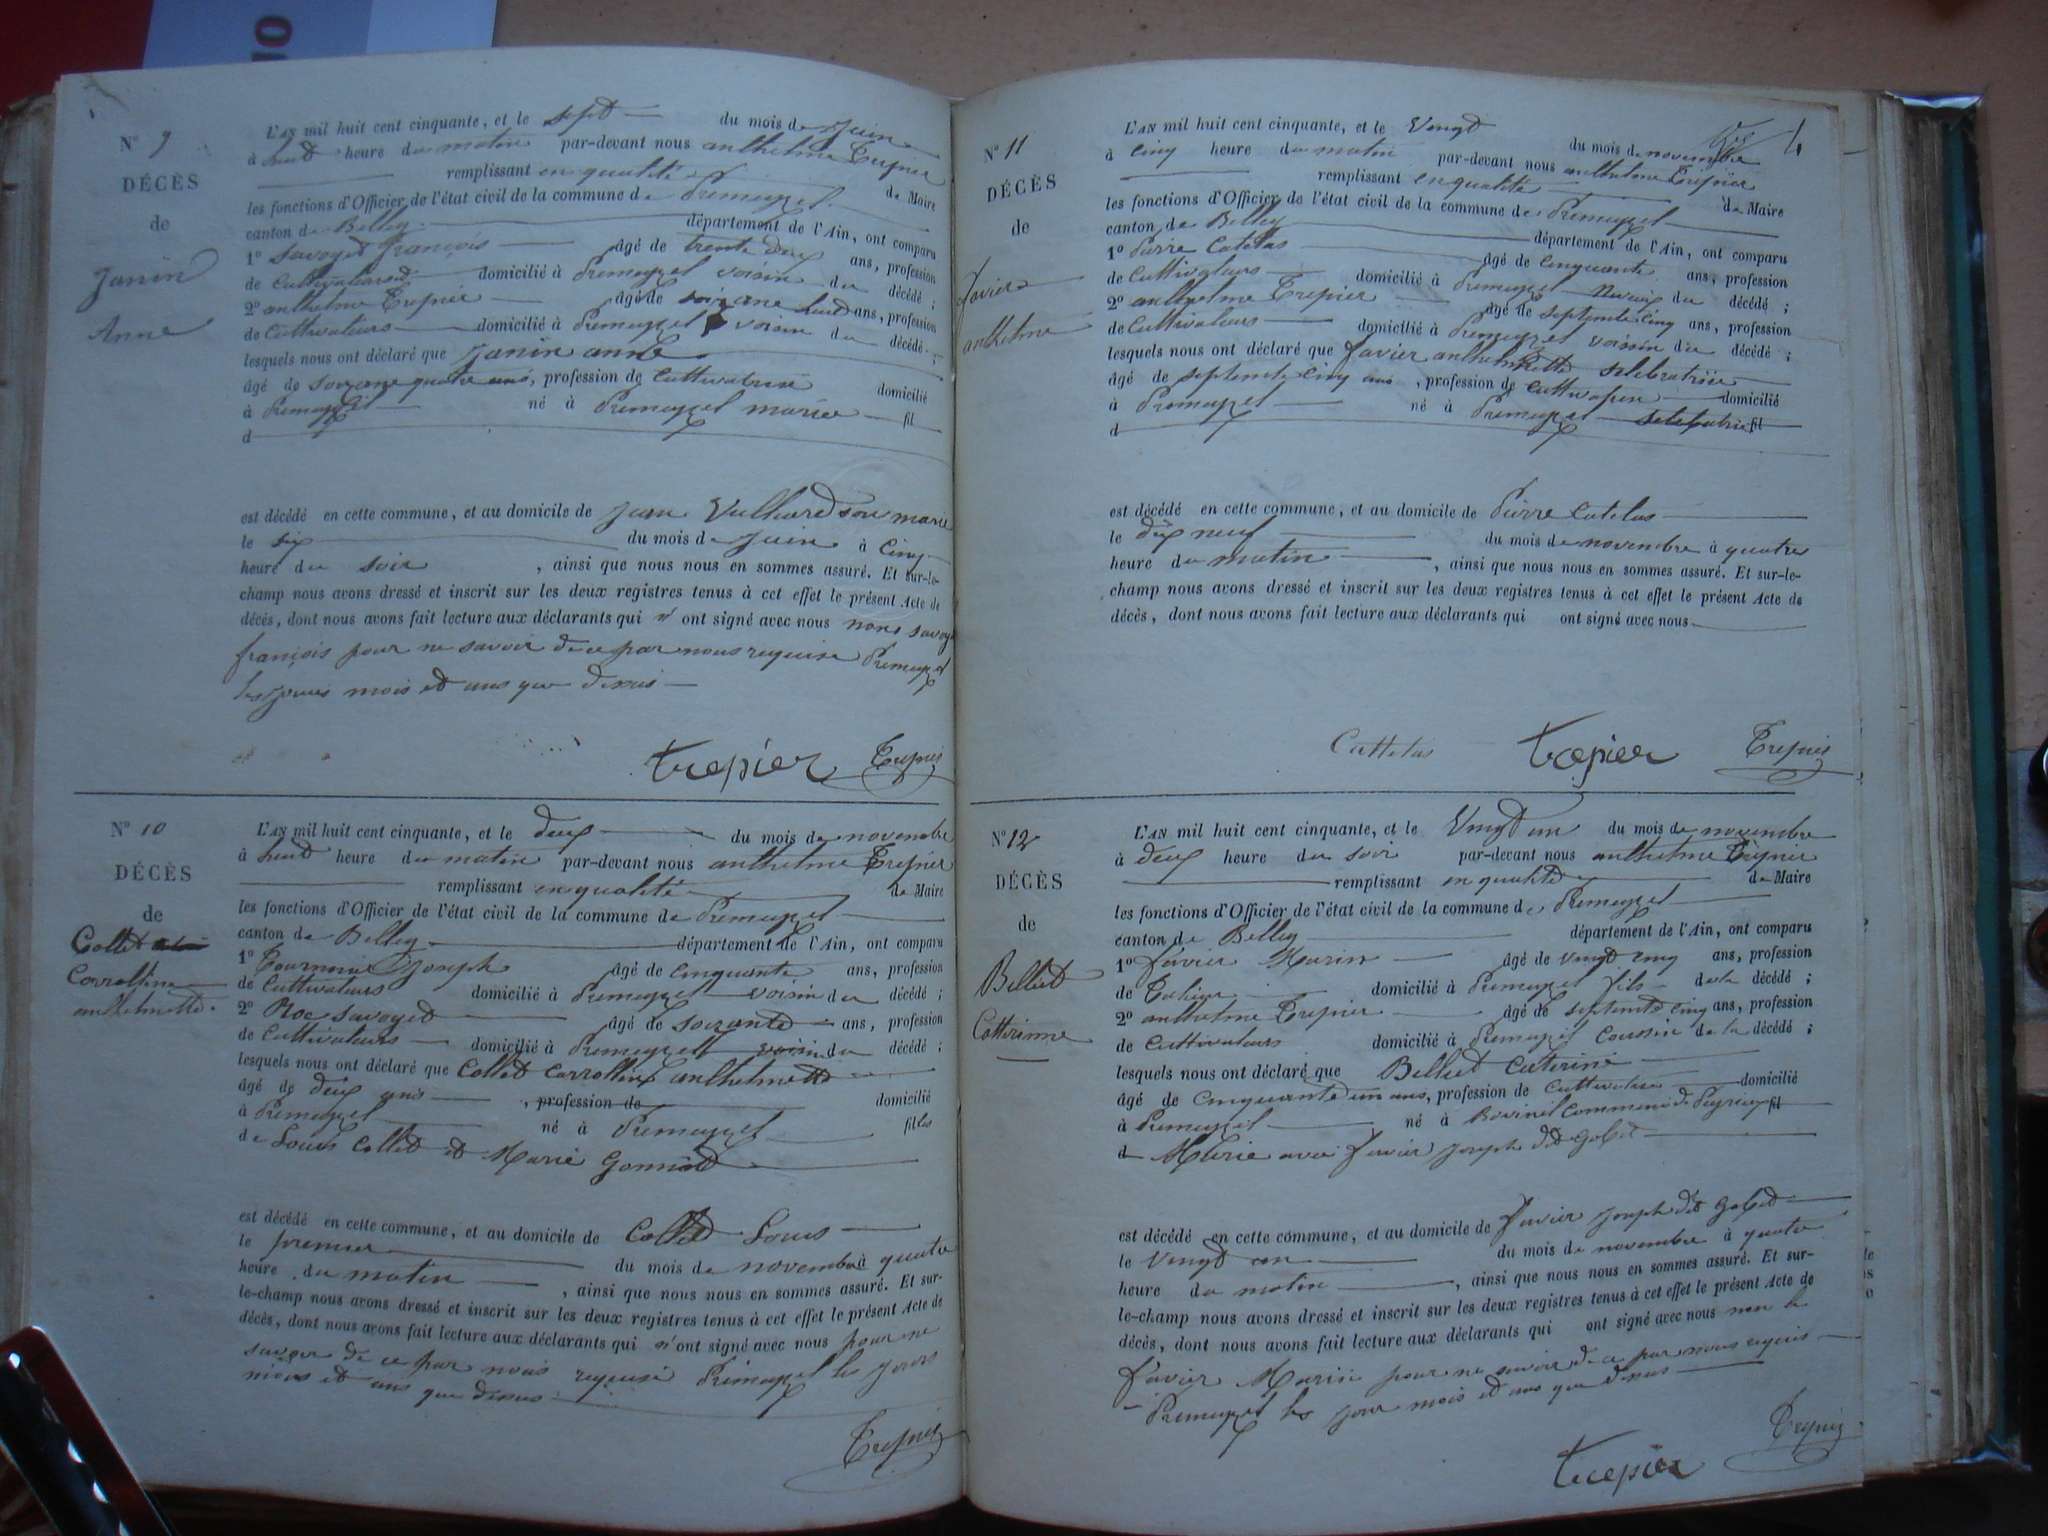 N° 9
DÉCÈS
de
Janin
Anne
L'AN mil huit cent cinquante, et le sept du mois de Juin
à huit heure du matin par-devant nous anthelme Trepier
remplissant en qualité de Maire
les fonctions d'Officier de l'état civil de la commune de Premeyzel
canton de Belley département de l'Ain, ont comparu
1° Savoyed françois âgé de trente deux ans, profession
de Cultivateurs domicilié à Premeyzel voisin du décédé ;
2° anthelme Trepier âgé de soixane huit ans, profession
de Cultivateurs domicilié à Premeyzel voisin du décédé ;
lesquels nous ont déclaré que Janin anne
âgé de soixane quatre ans, profession de Cultivatrice domicilié
à Premeyzel né à Premeyzel mariée fil
d
est décédé en cette commune, et au domicile de Jean Vulliard son marie
le six du mois de Juin à Cinq
heure du soir , ainsi que nous nous en sommes assuré. Et sur-le-
champ nous avons dressé et inscrit sur les deux registres tenus à cet effet le présent Acte de
décès, dont nous avons fait lecture aux déclarants qui n' ont signé avec nous nons savoye
françois pour ne savoir de ce par nous requise Premeyzel
les jours mois et ans que desus
trepier Trepier
N° 10
DÉCÈS
de
Collet
Carroline
anthelmette
L'AN mil huit cent cinquante, et le deux du mois de novembre
à huit heure du matin par-devant nous anthelme Trepier
remplissant en qualité de Maire
les fonctions d'Officier de l'état civil de la commune de Premeyzel
canton de Belley département de l'Ain, ont comparu
1° Tournier Joseph âgé de cinquante ans, profession
de Cultivateurs domicilié à Premeyzel voisin du décédé ;
2° Roc Savoyed âgé de soixante ans, profession
de Cultivateurs domicilié à Premeyzel voisin du décédé ;
lesquels nous ont déclaré que Collet Carroline anthelmette
âgé de deux ans , profession de domicilié
à Premeyzel né à Premeyzel filles
de Louis Collet et Marie
est décédé en cette commune, et au domicile de Collet Louis
le premier du mois de novembre à quatre
heure du matin , ainsi que nous nous en sommes assuré. Et sur-
le-champ nous avons dressé et inscrit sur les deux registres tenus à cet effet le présent Acte de
décès, dont nous avons fait lecture aux déclarants qui n'ont signé avec nous pour ne
savoir de ce par nous requise Premeyzel les jours
mois et ans que desus
Trepier
4
N° 11
DÉCÈS
de
favier
anthelme
L'AN mil huit cent cinquante, et le Vingt du mois de novembre
à cinq heure du matin par-devant nous anthelme Trepier
remplissant en qualité de Maire
les fonctions d'Officier de l'état civil de la commune de Premeyzel
canton de Belley département de l'Ain, ont comparu
1° Pierre Catelas âgé de cinquante ans, profession
de Cultivateurs domicilié à Premeyzel Neveux du décédé ;
2° anthelme Trepier âgé de septente cinq ans, profession
de Cultivateurs domicilié à Premeyzel voisin du décédé ;
lesquels nous ont déclaré que favier anthelmette selebatrice
âgé de septente cinq ans , profession de domicilié
à Premeyzel né à Premeyzel selebatrice fil
d
est décédé en cette commune, et au domicile de Pierre Catelas
le dix neuf du mois de novembre à quatre
heure du matin , ainsi que nous nous en sommes assuré. Et sur-le-
champ nous avons dressé et inscrit sur les deux registres tenus à cet effet le présent Acte de
décès, dont nous avons fait lecture aux déclarants qui ont signé avec nous
Cattelas trepier Trepier
N° 12
DÉCÈS
de
Bellet
Catterinne
L'AN mil huit cent cinquante, et le Vingt un du mois de novembre
à deux heure du soir par-devant nous anthelme Trepier
remplissant en qualité de Maire
les fonctions d'Officier de l'état civil de la commune de Premeyzel
canton de Belley département de l'Ain, ont comparu
1° favier Marin âgé de vingt cinq ans, profession
de domicilié à Premeyzel fils de la décédé ;
2° anthelme Trepier âgé de septente cinq ans, profession
de Cultivateurs domicilié à Premeyzel Coussin de la décédé ;
lesquels nous ont déclaré que Bellet Caterine
âgé de Cinquante un ans, profession de Cultivatrice domicilié
à Premeyzel né à Bovinel Commune de Peyrieu fil
d Mérie avec favier Joseph dit Gobet
est décédé en cette commune, et au domicile de favier Joseph dit Gobet
le Vingt un du mois de novembre à quatre
heure du matin , ainsi que nous nous en sommes assuré. Et sur-
le-champ nous avons dressé et inscrit sur les deux registres tenus à cet effet le présent Acte de
décès, dont nous avons fait lecture aux déclarants qui ont signé avec nous non le
favier Marin pour ne savoir de ce par nous requis
Premeyzel les jour mois et ans que desus
trepier Trepier